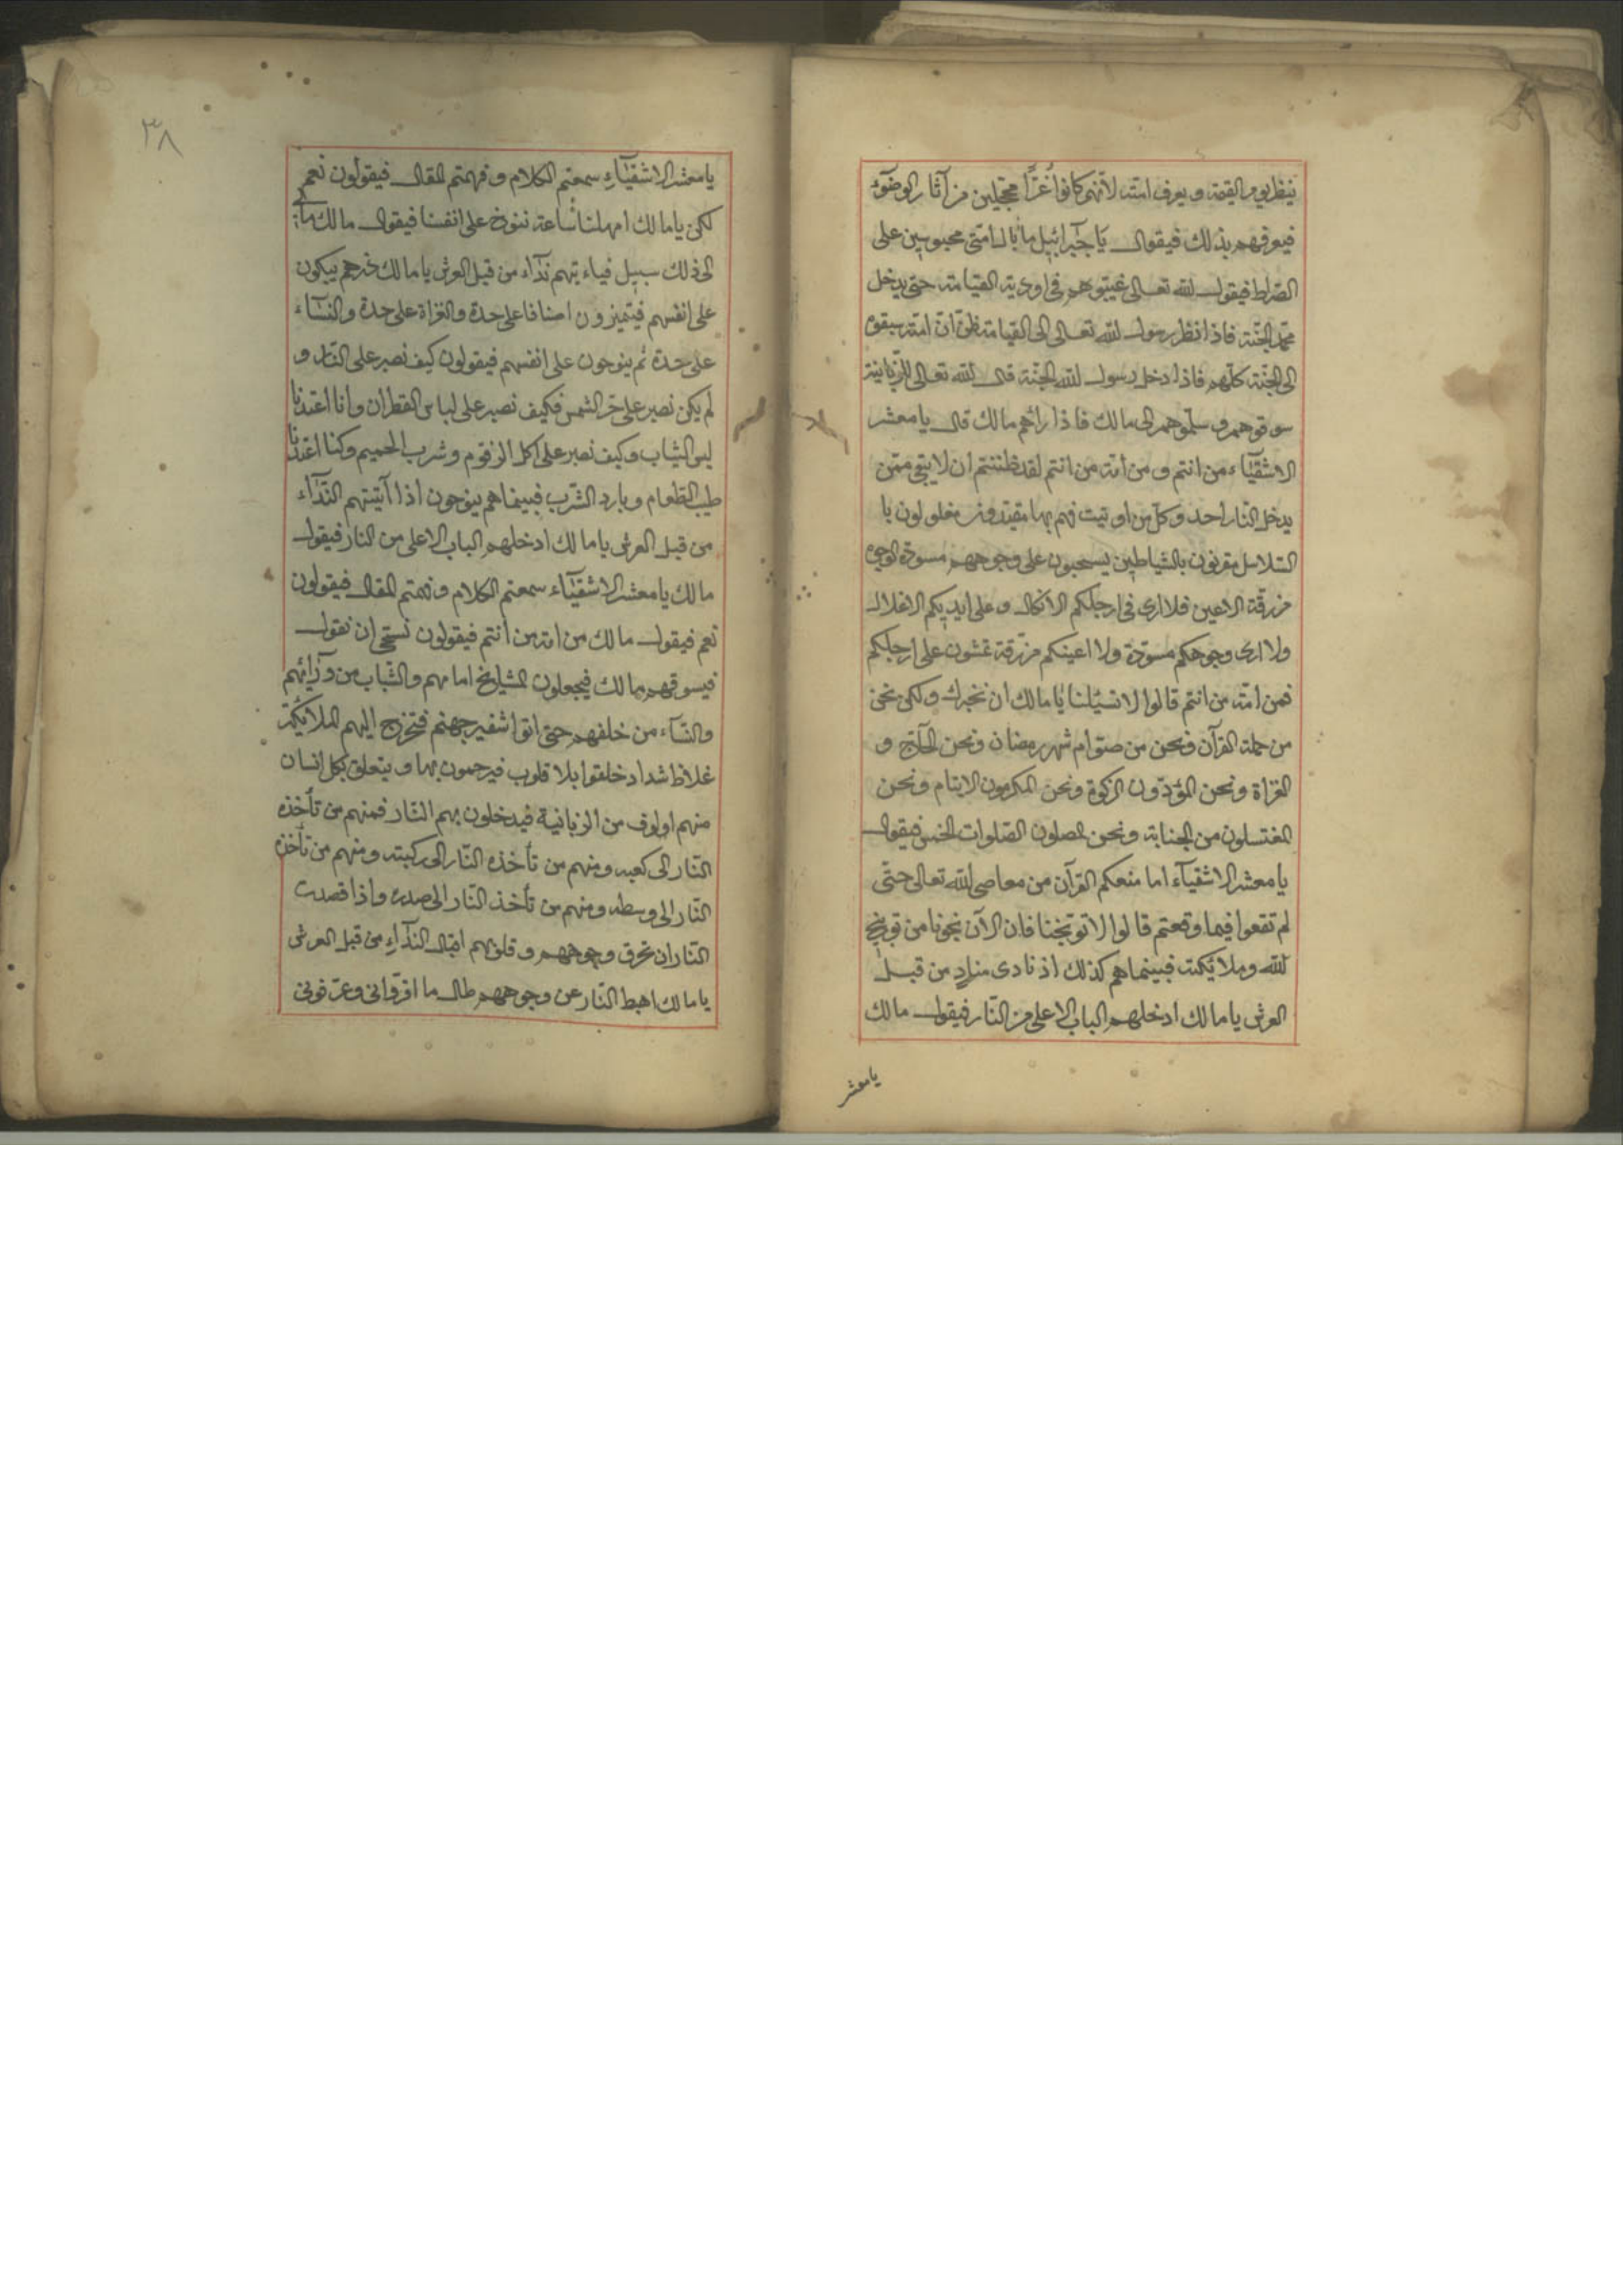 ينظر يوم القيمة ويعرف امته لانهم كانوا غرّا محجّلين من آثار الوضوء
فيعرفهم بذلك فيقول يا جبرائيل ما بال امتى محبوسين على
الصراط فيقول الله تعالى غيّبوهم فى اودية القيامة حتى يدخل
محمد الجنّة فاذا نظر رسول الله تعالى الى القيامة ظنّ انّ امته سبقوه
الى الجنّة كلّهم فاذا دخل رسول الله الجنّة قال الله تعالى للزّبانية
سوقوهم وسلّموهم الى مالك فاذا رآهم مالك قال يا معشر
الاشقيآء من انتم ومن امة من انتم لقد ظننتم ان لا يبقى ممّن
يدخل النار احد وكلّ من اوتيت فهم بها مقيّدون مغلولون با
السّلاسل مقرنون بالشياطين يسحبون على وجوههم مسودّة الوجوه
مزرقّة الاعين فلا ارى فى ارجلكم الانكال وعلى ايديكم الاغلال
ولا ارى وجوهكم مسودّة ولا اعينكم مزرّقة تمشون على ارجلكم
فمن امّة من انتم قالوا لا تسئلنا يا مالك ان نخبرك ولكن نحن
من حملة القرآن ونحن من صوّام شهر رمضان ونحن الحآج و
الغزاة ونحن المؤدّون الزكوة ونحن المكرمون الايتام ونحن
المغتسلون من الجنابة ونحن المصلون الصّلوات الخمس فيقول
يا معشر الاشقيآء اما منعكم القرآن من معاصى الله تعالى حتّى
لم تقعوا فيما وقعتم قالوا لا توبّخنا فان الآن نجونا من توبيخ
الله وملائكته فبينما هم كذلك اذ نادى مناد من قبل
العرش يا مالك ادخلهم الباب الاعلى من النّار فيقول مالك
يا معشر
٣٨
يا معشر الاشقيآء سمعتم الكلام وفهمتم المقال فيقولون نعم
لكن يا مالك امهلنا ساعة ننوح على انفسنا فيقول مالك ما
الى ذلك سبيل فياءتيهم ندآء من قبل العرش يا مالك ذرهم يبكون
على انفسهم فيتميزون اصنافا على حدة والغزاة على حدة والنسآء
على حدة ثم ينوحون على انفسهم فيقولون كيف نصبر على النّار و
لم يكن نصبر على حرّ الشمس فكيف نصبر على لباس القطران وانا اعتدنا
لبس الثياب وكيف نصبر على اكل الزقوم وشرب الحميم وكنا اعتدنا
طيب الطّعام وبارد الشّرب فبينما هم ينوحون اذا آتيتهم النّدآء
من قبل العرش يا مالك ادخلهم الباب الاعلى من النار فيقول
مالك يا معشر الاشقيآء سمعتم الكلام وفهمتم المقال فيقولون
نعم فيقول مالك من امة من انتم فيقولون نستحى ان نقول
فيسوقهم مالك فيجعلون المشايخ امامهم والشّباب من ورائهم
والنّسآء من خلفهم حتى اتوا شفير جهنم فتخرج اليهم الملائكة
غلاظ شداد خلقوا بلا قلوب فيرحمون بها ويتعلق بكل انسان
منهم اولوف من الزبانية فيدخلون بهم النّار فمنهم من تأخذه
النّار الى كعبه ومنهم من تأخذه النّار الى ركبته ومنهم من تأخذه
النّار الى وسطه ومنهم من تأخذ النّار الى صدره واذا قصدت
النّار ان تحرق وجوههم وقلوبهم اقبال النّدآء من قبل العرش
يا مالك اهبط النّار عن وجوههم طال ما اقرّوانى وعرّفونى